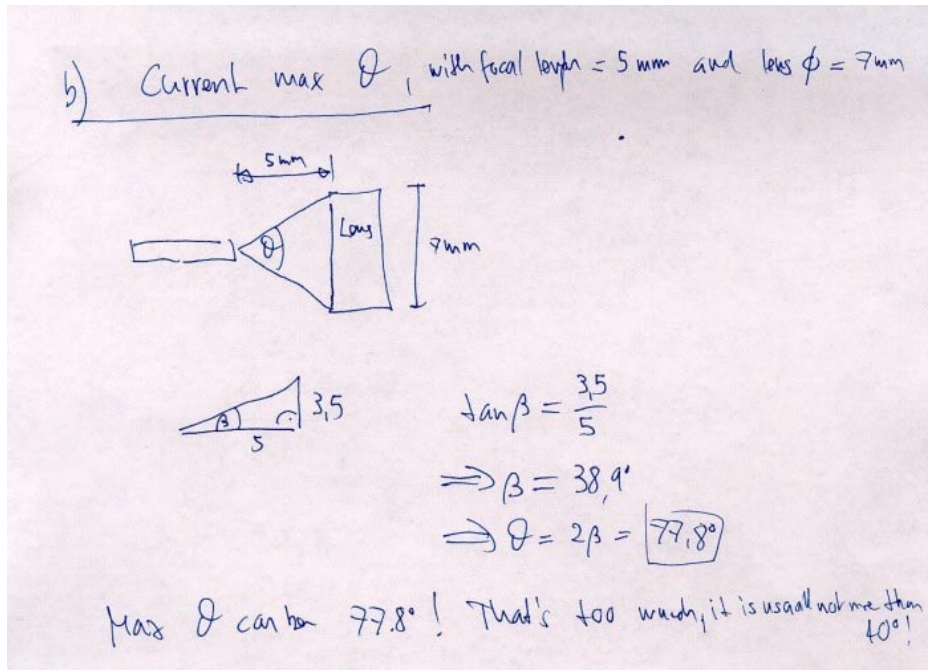 b) Current max θ, with focal length = 5 mm and lens ϕ = 7mm
5 mm
θ
Lens
7mm
β
5
3,5
tan β = 3,5/5
⇒ β = 38,9°
⇒ θ = 2β = 77,8°
Max θ can be 77.8° ! That's too much, it is usuall not me than
40°!